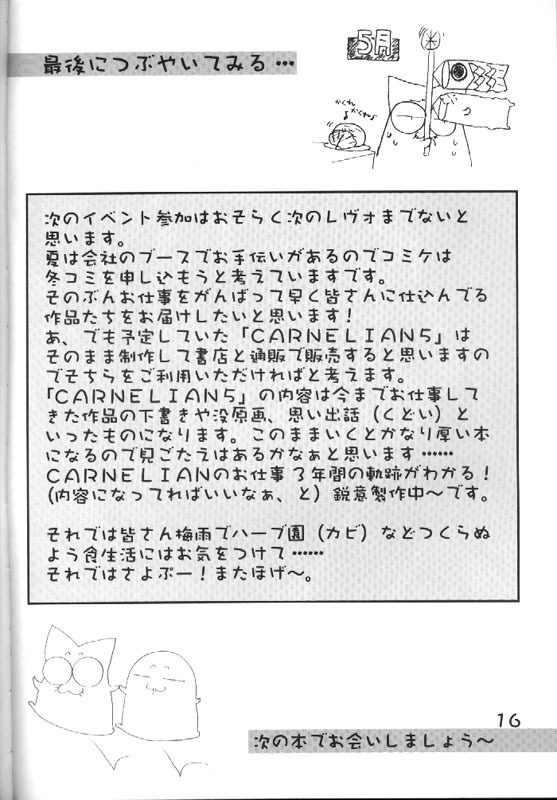 最後につぶやいてみる…
5月
かくれ
かくれ
次のイベント参加はおそらく次のレヴォまでないと
思います。
夏は会社のブースでお手伝いがあるのでコミケは
冬コミを申し込もうと考えていますです。
そのぶんお仕事をがんばって早く皆さんに仕込んでる
作品たちをお届けしたいと思います！
あ、でも予定していた「CARNELIAN5」は
そのまま制作して書店と通販で販売すると思いますの
でそちらをご利用いただければと考えます。
「CARNELIAN5」の内容は今までお仕事して
きた作品の下書きや没原画、思い出話（くどい）と
いったものになります。このままいくとかなり厚い本
になるので見ごたえはあるかなぁと思います……
CARNELIANのお仕事3年間の軌跡がわかる！
(内容になってればいいなぁ、と）鋭意製作中〜です。
それでは皆さん梅雨でハーブ園（カビ）などつくらぬ
よう食生活にはお気をつけて……
それではさよぷー！またほげ〜。
16
次の本でお会いしましょう〜